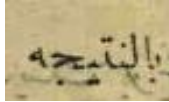 بالنتيجه